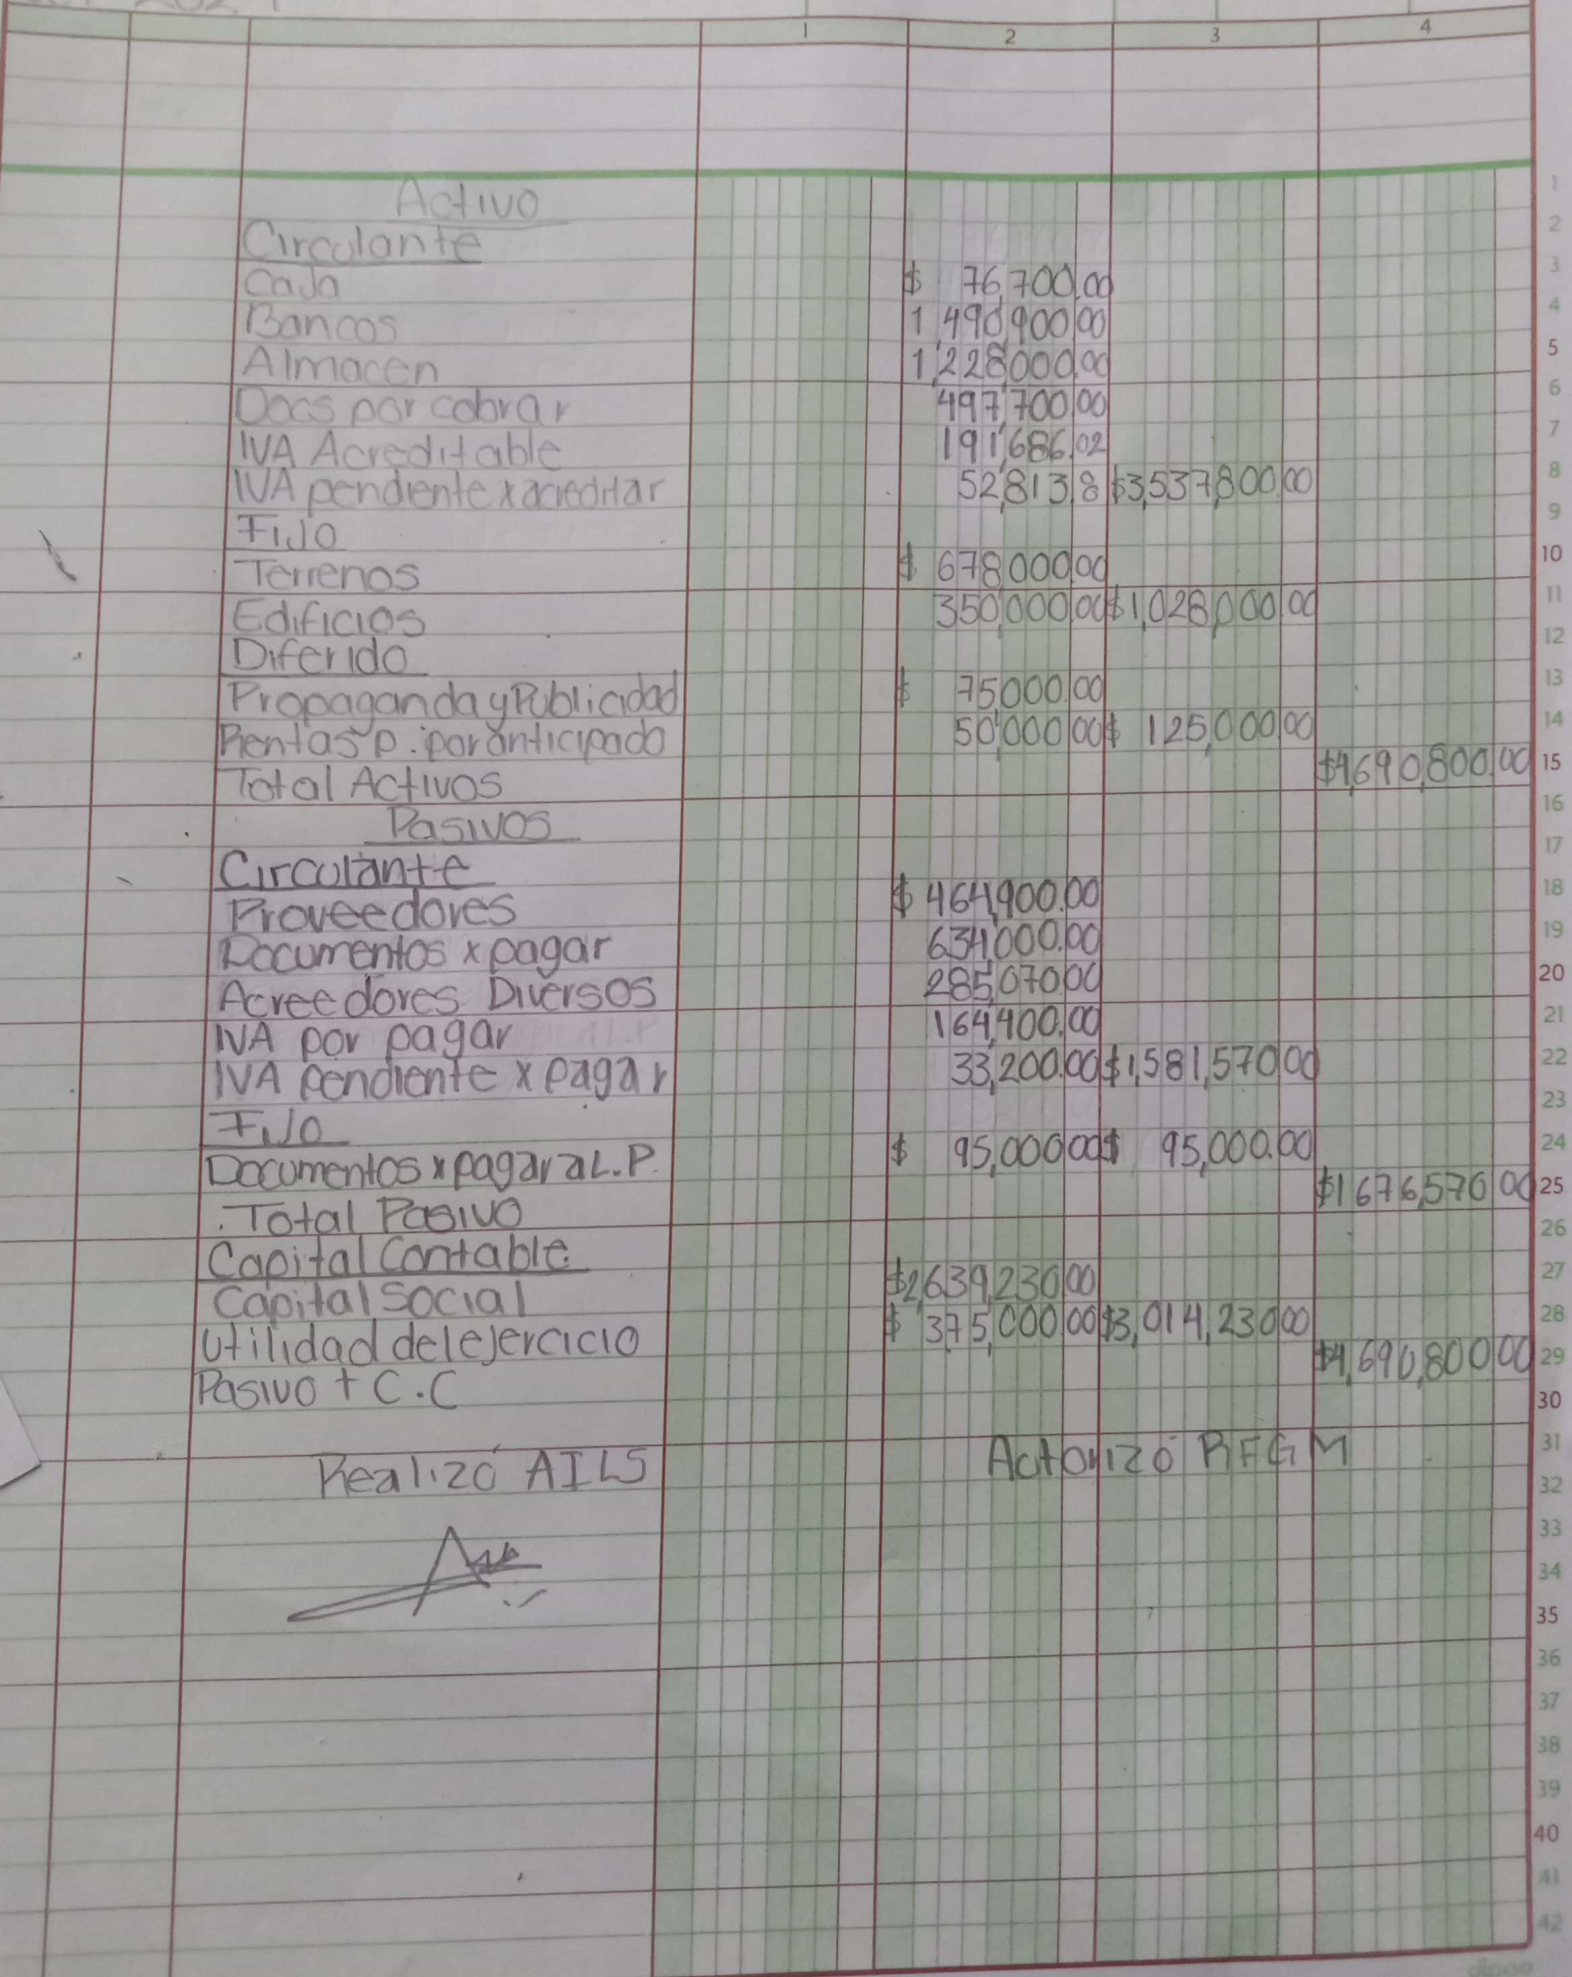 1 2 3 4
Activo
Circulante
Caja $ 76,700.00
Bancos 1,490,900.00
Almacen 1,228,000.00
Docs por cobrar 497,700.00
IVA Acreditable 191,686.02
IVA pendiente x acreditar 52,813.8 $3,537,800.00
Fijo
Terrenos $ 678,000.00
Edificios 350,000.00 $1,028,000.00
Diferido
Propaganda y Publicidad $ 75,000.00
Rentas p. por anticipado 50,000.00 $ 125,000.00
Total Activos $4,690,800.00
Pasivos
Circulante
Proveedores $ 464,900.00
Documentos x pagar 634,000.00
Acreedores Diversos 285,070.00
IVA por pagar 164,400.00
IVA pendiente x pagar 33,200.00 $1,581,570.00
Fijo
Documentos x pagar a L.P. $ 95,000.00 $ 95,000.00
Total Pasivo $1,676,570.00
Capital Contable
Capital Social $2,639,230.00
Utilidad del ejercicio $ 375,000.00 $3,014,230.00
Pasivo + C.C $4,690,800.00
Realizó AILS Actorizó RFGM
1
2
3
4
5
6
7
8
9
10
11
12
13
14
15
16
17
18
19
20
21
22
23
24
25
26
27
28
29
30
31
32
33
34
35
36
37
38
39
40
41
42